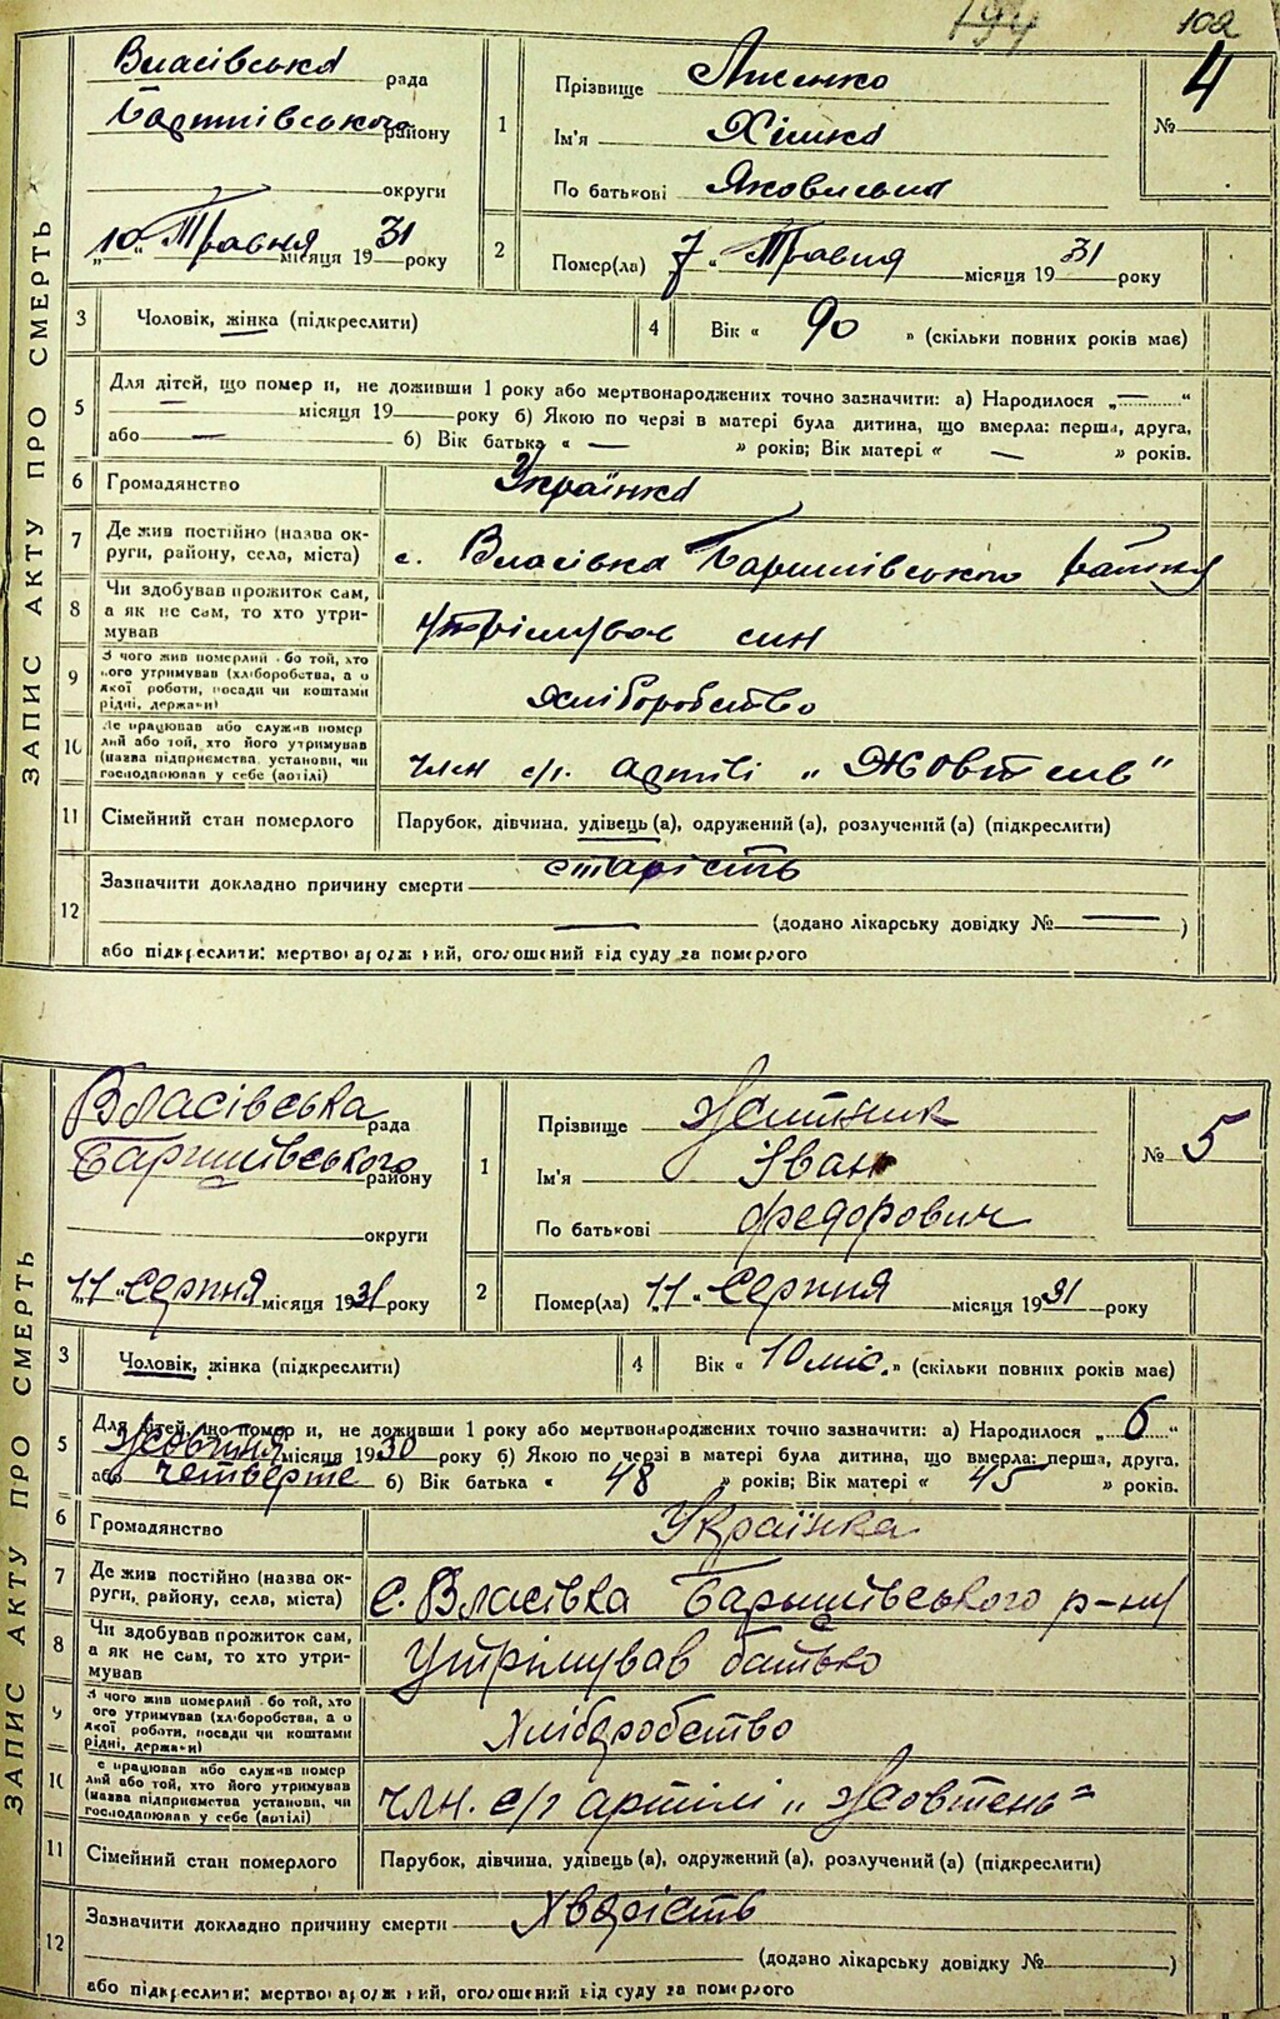 194 102
ЗАПИС АКТУ ПРО СМЕРТЬ
Власівська рада
Баришівського району
округи
„10“ Травня місяця 1931 року
1
Прізвище Лисенко
Ім'я Хімка
По батькові Яковисьна
№ 4
2
Помер(ла) 7 „ Травня місяця 1931 року
3 Чоловік, жінка (підкреслити)
4 Вік « 90 » (скільки повних років має)
5 Для дітей, що помер и, не доживши 1 року або мертвонароджених точно зазначити: а) Народилося „—“
місяця 19 року б) Якою по черзі в матері була дитина, що вмерла: перша, друга,
або — б) Вік батька « — » років; Вік матері « — » років.
6 Громадянство Українка
7 Де жив постійно (назва ок-
руги, району, села, міста) с. Власівка Баришівського району
8 Чи здобував прожиток сам,
а як не сам, то хто утри-
мував утрімував син
9 З чого жив померлий бо той, хто
його утримував (хліборобства, а о
якої роботи, посади чи коштами
рідні, держави) хліборобство
10 Де працював або служив помер
лий або той, хто його утримував
(назва підприємства установи, чи
господарював у себе (артілі) член с/г. артілі „Жовтень"
11 Сімейний стан померлого Парубок, дівчина, удівець (а), одружений (а), розлучений (а) (підкреслити)
12 Зазначити докладно причину смерти старість
— (додано лікарську довідку № — )
або підкреслити: мертвонароджений, оголошений від суду за померлого
ЗАПИС АКТУ ПРО СМЕРТЬ
Власівська рада
Баришівського району
округи
„11“ Серпня місяця 1931 року
1
Прізвище Житник
Ім'я Іван
По батькові Федорович
№ 5
2
Помер(ла) „11„ Серпня місяця 1931 року
3 Чоловік, жінка (підкреслити)
4 Вік « 10 міс. » (скільки повних років має)
5 Для дітей, що помер и, не доживши 1 року або мертвонароджених точно зазначити: а) Народилося „6“
Жовтня місяця 1930 року б) Якою по черзі в матері була дитина, що вмерла: перша, друга,
або четверте б) Вік батька « 48 » років; Вік матері « 45 » років.
6 Громадянство Українка
7 Де жив постійно (назва ок-
руги, району, села, міста) с. Власівка Баришівського р-ну
8 Чи здобував прожиток сам,
а як не сам, то хто утри-
мував Утрімував батько
9 З чого жив померлий бо той, хто
ого утримував (хліборобства, а о
якої роботи, посади чи коштами
рідні, держави) Хліборобство
10 е працював або служив помер
лий або той, хто його утримував
(назва підприємства установи, чи
господарював у себе (артілі) член. с/г артілі „Жовтень"
11 Сімейний стан померлого Парубок, дівчина, удівець (а), одружений (а), розлучений (а) (підкреслити)
12 Зазначити докладно причину смерти хворість
(додано лікарську довідку № )
або підкреслити: мертвонароджений, оголошений від суду за померлого